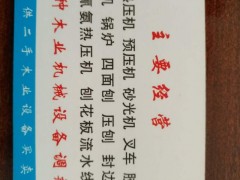 主要经营
压机 预压机 砂光机 叉车
机 锅炉 四面刨 压刨 封边
氰氨热压机 刨花板流水线
种木业机械设备调
供二手木业设备买卖